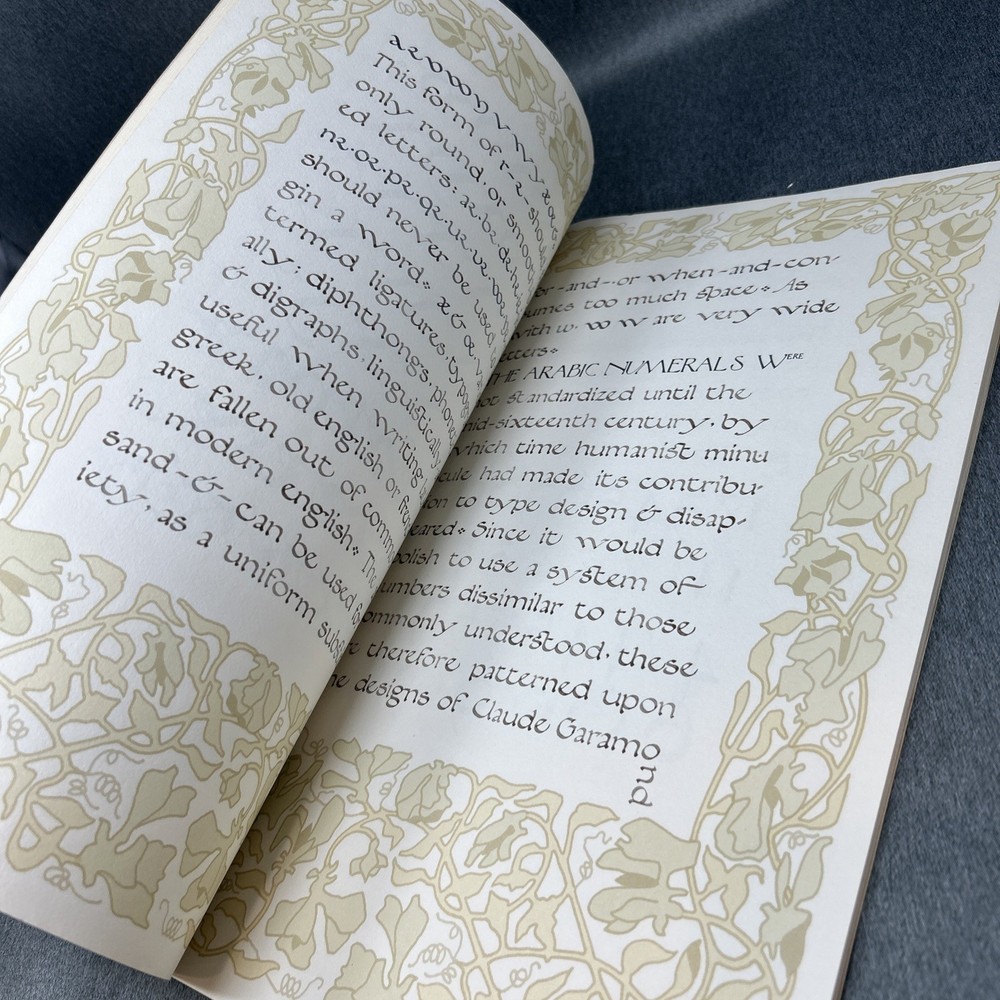 This form of r-2- should
only round, or smooth
ed letters:
should never be used
gin a word.
termed ligatures, typog
ally; diphthongs, phone
& digraphs, linguistically
useful when writing
greek, old english or fre
are fallen out of comm
in modern english. The
sand-&-can be used fo
iety, as a uniform subs
or-and-or when-and-con-
umes too much space. As
with w. are very wide
etters.
THE ARABIC NUMERALS WERE
not standardized until the
mid-sixteenth century, by
which time humanist minu
cule had made its contribu-
on to type design & disap-
eared. Since it would be
oolish to use a system of
umbers dissimilar to those
ommonly understood, these
re therefore patterned upon
he designs of Claude Garamond